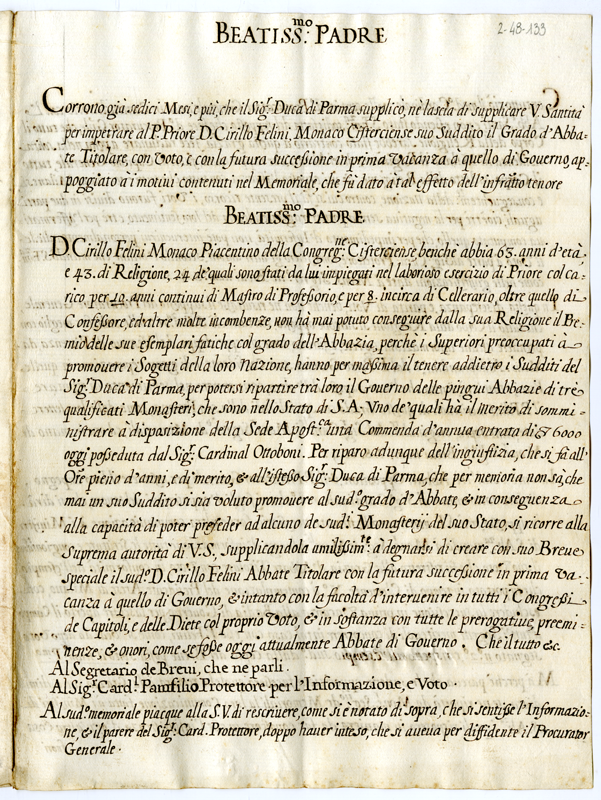 2-48-133
BEATISS.mo PADRE
Corrono già sedici Mesi, e più, che il Sig.r Duca di Parma supplicò, nè lascia di supplicare V. Santità
per impetrare al P. Priore D. Cirillo Felini, Monaco Cisterciense suo Suddito il Grado d'Abba-
te Titolare, con Voto, e con la futura successione in prima Vacanza à quello di Governo, ap-
poggiato à i motivi contenuti nel Memoriale, che fù dato à tal effetto dell'infratto tenore
BEATISS.mo PADRE
D. Cirillo Felini Monaco Piacentino della Congreg.ne Cisterciense benche abbia 63. anni d'età
e 43. di Religione, 24 de' quali sono stati da lui impiegati nel laborioso esercizio di Priore col ca-
rico, per 10. anni continui di Mastro di Professorio, e per 8. incirca di Cellerario, oltre quello di
Confessore, ed altre molte incombenze, non hà mai potuto conseguire dalla sua Religione il Pre-
mio delle sue esemplari fatiche col grado dell'Abbazia, perche i Superiori preoccupati à
promouere i Sogetti della loro Nazione, hanno per massima il tenere addietro i Sudditi del
Sig.r Duca di Parma, per potersi ripartire trà loro il Governo delle pingui Abbazie di trè
qualificati Monasterj, che sono nello Stato di S. A; Vno de' quali hà il merito di sommi-
nistrare à disposizione della Sede Apost.ca una Commenda d'annua entrata di 6000
oggi posseduta dal Sig.r Cardinal Ottoboni. Per riparo adunque dell'ingiustizia, che si fà all'
Ore pieno d'anni, e di merito, & all'istesso Sig.r Duca di Parma, che per memoria non sà, che
mai un suo Suddito si sia voluto promouere al sud.o grado d'Abbate, & in conseguenza
alla capacità di poter preseder ad alcuno de sud.i Monasterij del suo Stato, si ricorre alla
Suprema autorità di V. S., supplicandola umilissim.te à degnarsi di creare con suo Breue
speciale il sud.o D. Cirillo Felini Abbate Titolare con la futura successione in prima Va-
canza à quello di Governo, & intanto con la facoltà d'intervenire in tutti i Congressi
de Capitoli, e delle Diete col proprio Voto, & in sostanza con tutte le prerogative, preemi-
nenze, & onori, come se fosse oggi attualmente Abbate di Governo. Che il tutto &c.
Al Segretario de Breui, che ne parli.
Al Sig.r Card.l Panfilio Protettore per l'Informazione, e Voto.
Al sud.o memoriale piacque alla S. V. di rescriuere, come si è notato di sopra, che si sentisse l'Informazio-
ne, & il parere del Sig.r Card. Protettore, doppo hauer inteso, che si aueua per diffidente il Procurator
Generale.